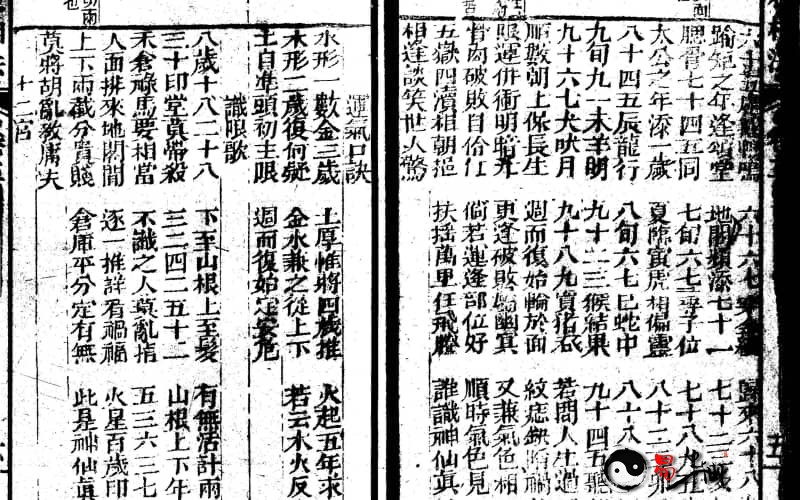 六十六七穿金縷 歸來六十八
踰矩之年逢頌堂 地閣頻添七十一 七十二三
腮骨七十四五同 七旬六七尋子位 七十八九
太公之年添一歲 夏臨寅虎相偏靈 八十二
八十四五辰龍行 八旬六七巳蛇中 八十八
九旬九一未羊明 九十二三猴結果 九十四五聽
九十六七犬吠月 九十八九買猪吞 若問人生過
順數朝上保長生 週而復始輪於面 紋痣缺陷禍
限運併衝明暗九 更逢破敗屬幽冥 又兼氣色相
當內破敗自伶仃 倘若運逢部位好 順時氣色見
五嶽四瀆相朝挹 扶搖萬里任飛騰 誰識神仙眞
相逢談笑世人驚
運氣口訣
水形一數金三歲 土厚惟將四歲推 火起五年求
木形二歲復何疑 金水兼之從上下 若云水火反
土自準頭初主限 週而復始定安危
識限歌
八歲十八二十八 下至山根上至髮 有無活計兩
三十印堂莫帶殺 三二四二五十二 山根上下年
禾倉祿馬要相當 不識之人莫亂指 五三六三七
人面排來地閣間 逐一推詳看禍福 火星百歲印
上下兩截分貴賤 倉庫平分定有無 此是神仙眞
莫將胡亂教庸夫
十二宮
易